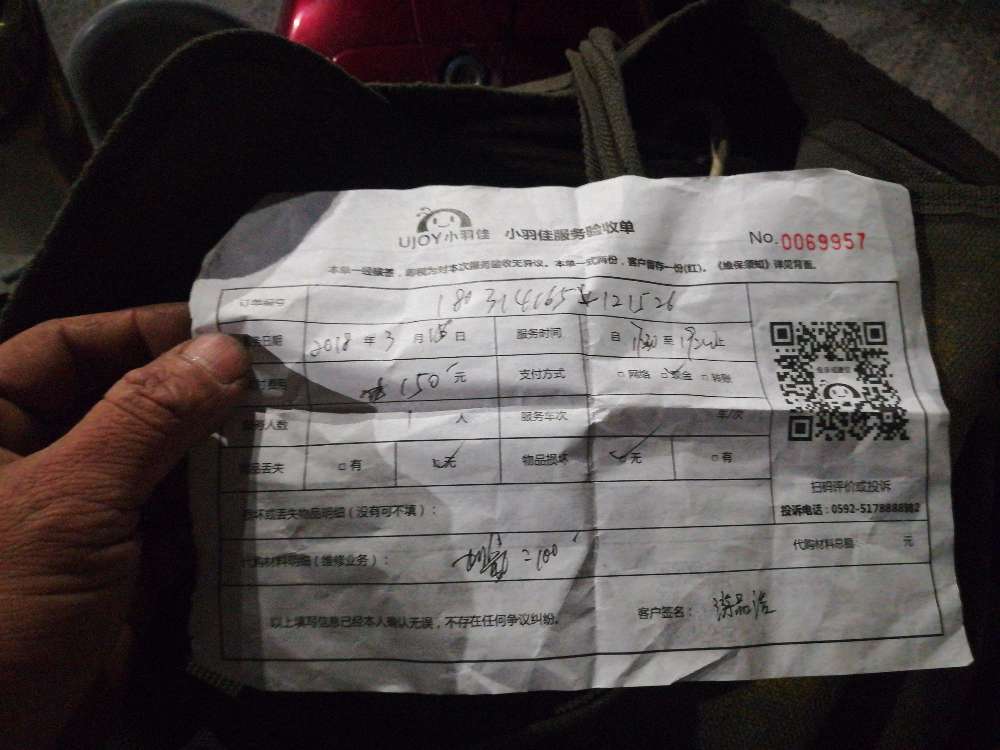 UJOY小羽佳 小羽佳服务验收单
No. 0069957
本单一经签署,即视为对本次服务验收无异议。本单一式两份,客户留存一份(红)。《维保须知》详见背面。
订单编号
服务日期 2018 年 3 月 日 服务时间 自 至 止
150 元 支付方式 □网络 □现金 □转账
服务人数 1 人 服务车次 车/次
物品丢失 □有 □无 物品损坏 □无 □有
扫码评价或投诉
投诉电话:0592-5178888
损坏或丢失物品明细(没有可不填):
代购材料明细(维修业务): =100 代购材料总额: 元
以上填写信息已经本人确认无误,不存在任何争议纠纷。 客户签名: